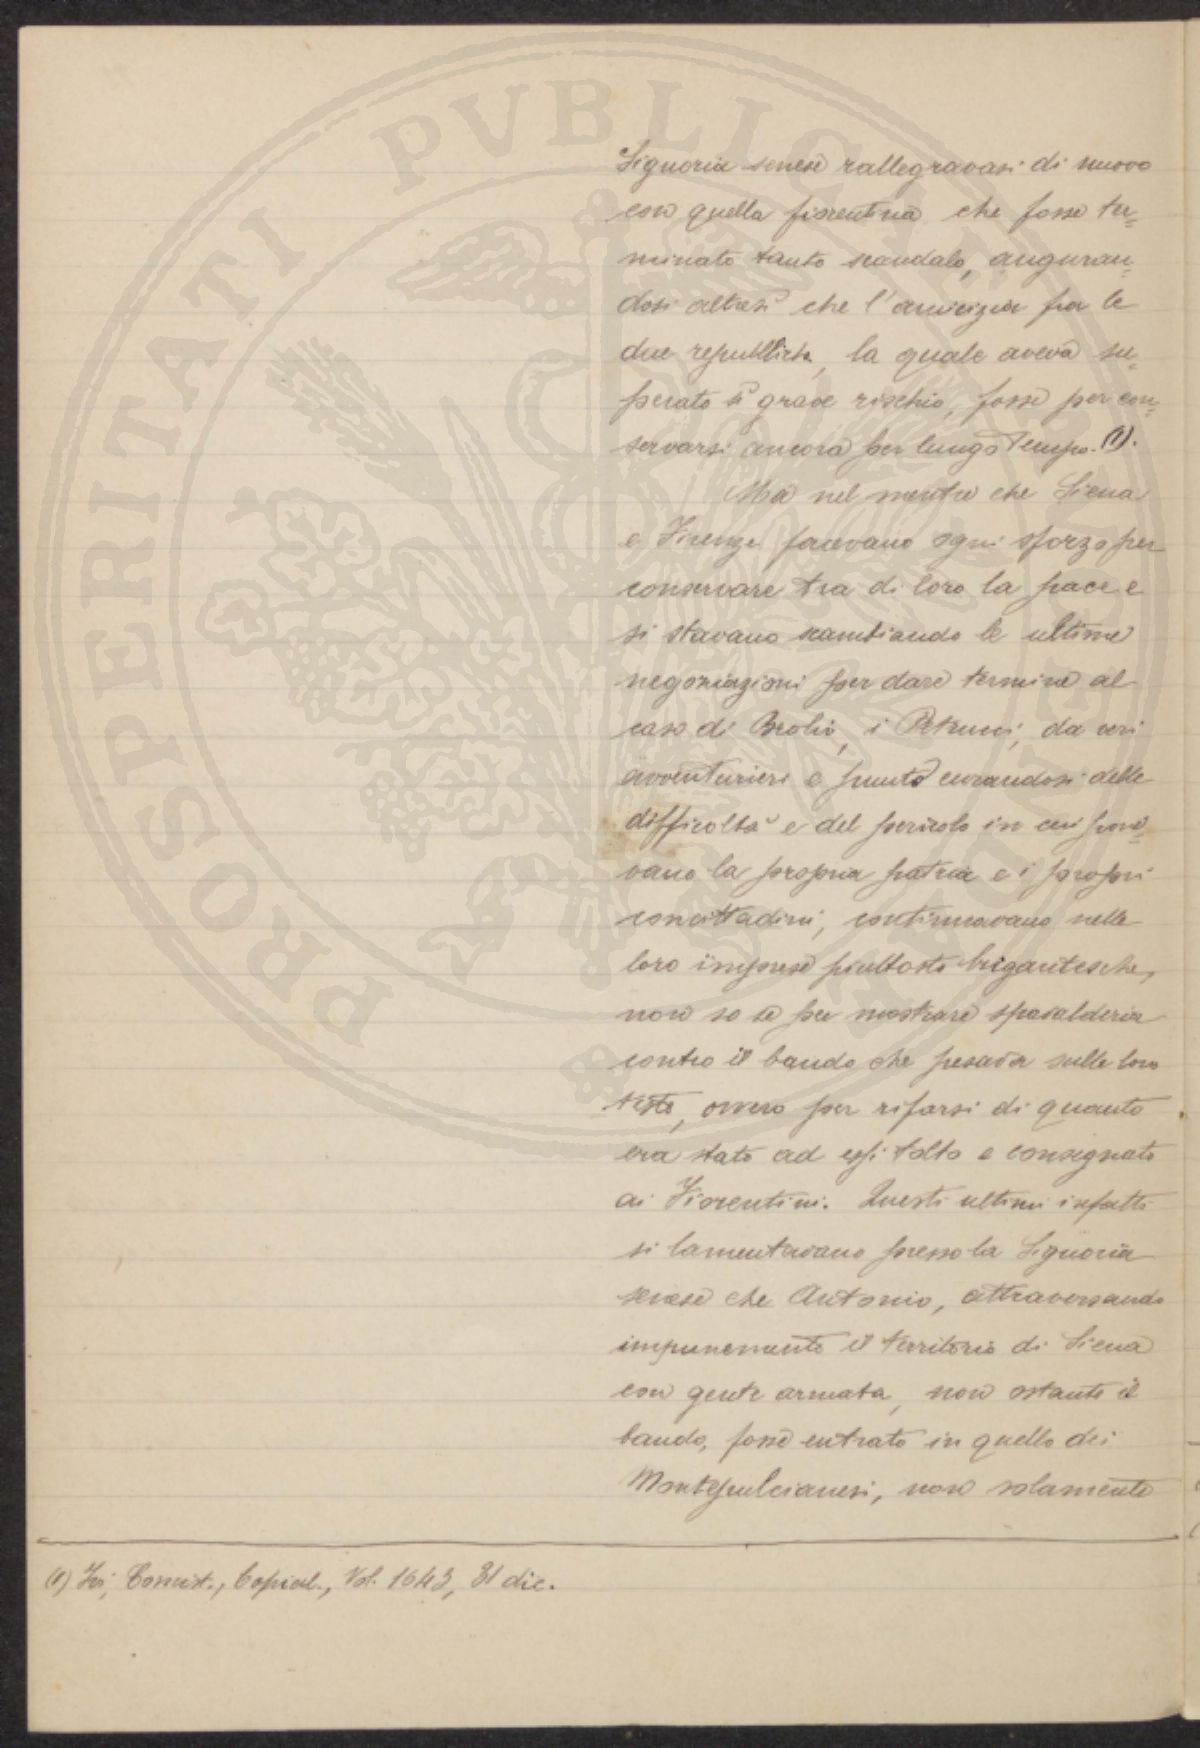 PROSPERITATI PVBLICAE AVGENDAE
Signoria senese rallegravasi di nuovo
con quella fiorentina che fosse ter=
minato tanto scandalo, auguran=
dosi altresì che l'amicizia fra le
due repubbliche, la quale aveva su=
perato sì grave rischio, fosse per con=
servarsi ancora per lungo tempo. (1).
Ma nel mentre che Siena
e Firenze facevano ogni sforzo per
conservare tra di loro la pace e
si stavano scambiando le ultime
negoziazioni per dare termine al
caso di Brolio, i Petrucci, da veri
avventurieri e punto curandosi delle
difficoltà e del pericolo in cui pone=
vano la propria patria e i propri
concittadini, continuavano nelle
loro imprese piuttosto brigantesche,
non so se per mostrare spavalderia
contro il bando che pesava sulle loro
teste, ovvero per rifarsi di quanto
era stato ad essi tolto e consegnato
ai Fiorentini. Questi ultimi infatti
si lamentavano presso la Signoria
senese che Antonio, attraversando
impunemente il territorio di Siena
con gente armata, non ostante il
bando, fosse entrato in quello dei
Montepulcianesi, non solamente
(1) Ivi, Concist., Copial., Vol. 1643, 31 dic.